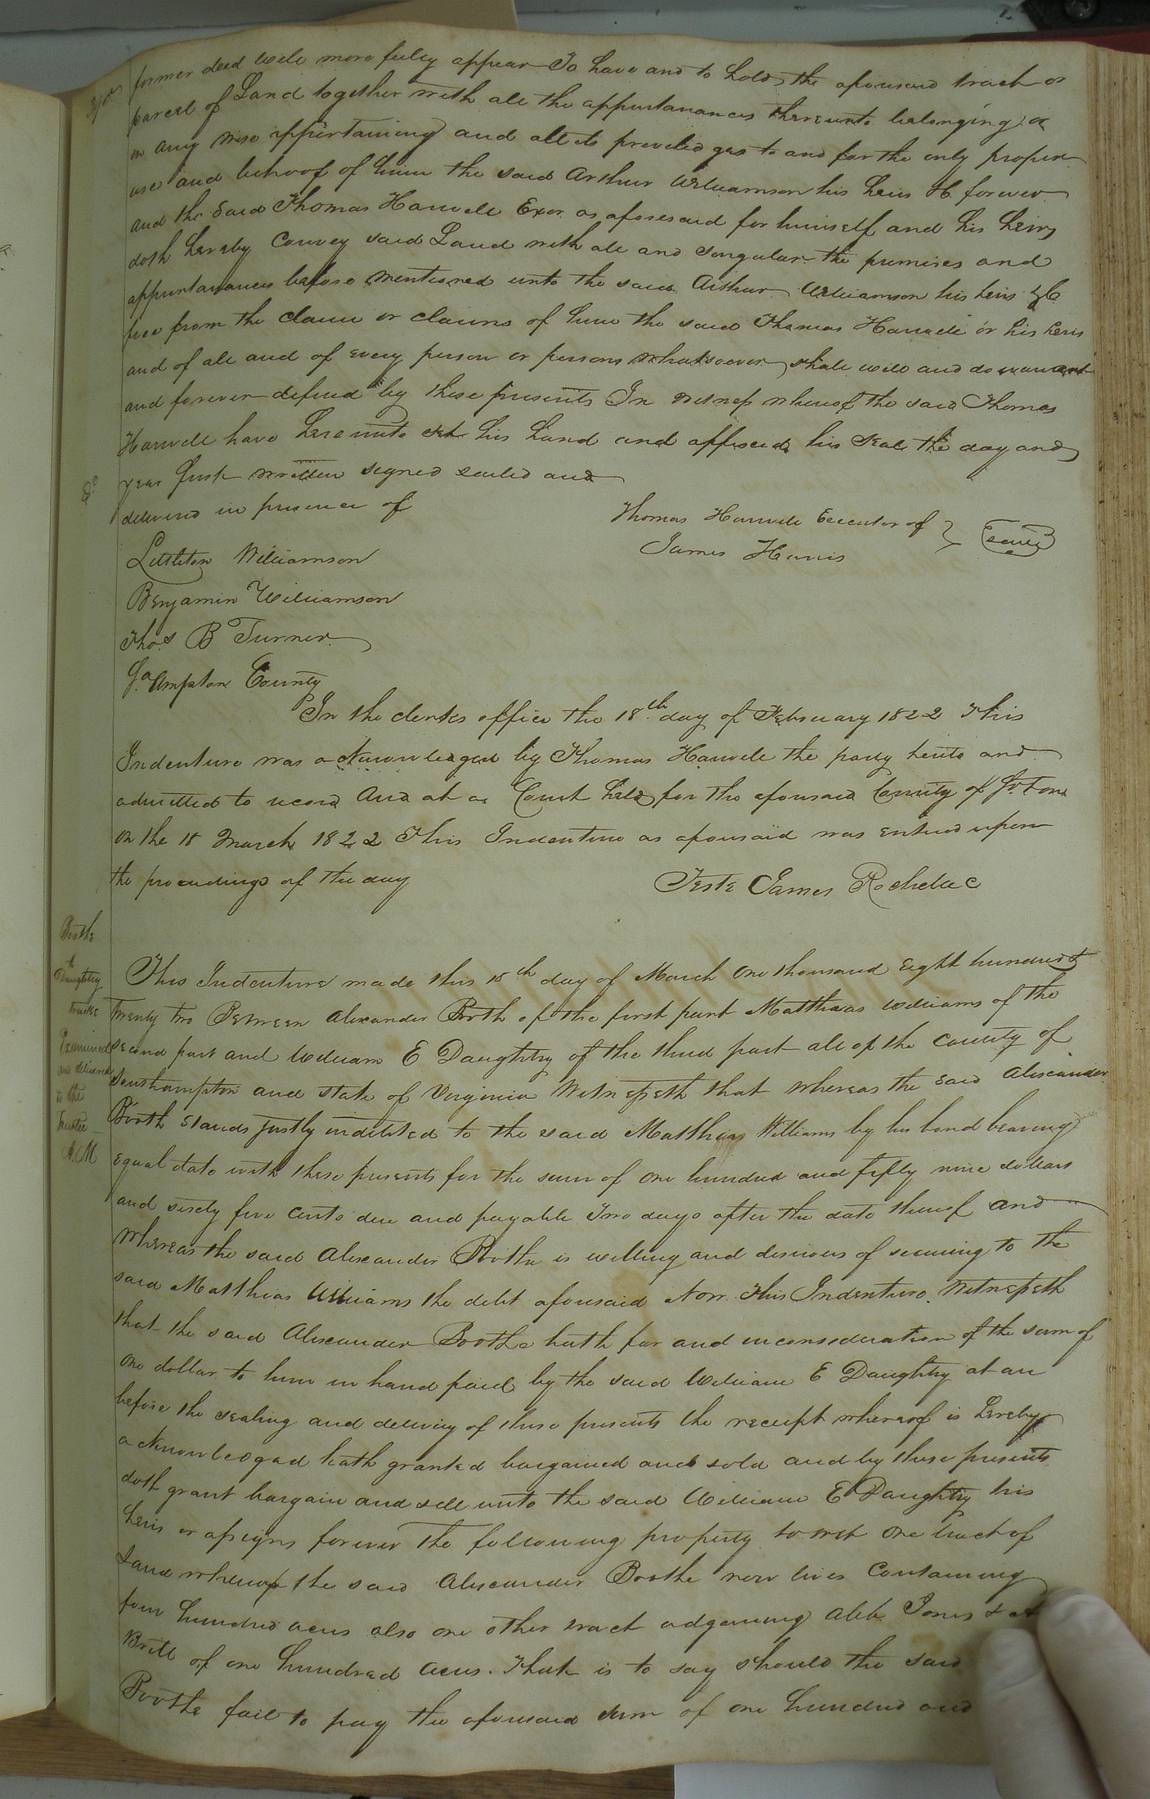 former deed will more fully appear To have and to hold the aforesaid tract or
parcel of Land together with all the appurtanances thereunto belonging or
in any wise appertaining and all its priviledges to and for the only proper
use and behoof of him the said Arthur Williamson his heirs &c forever
and the said Thomas Harwell Exor as aforesaid for himself and his heirs
doth hereby Convey said Land with all and singular the premises and
appurtanances before mentioned unto the said Arthur Williamson his heirs &c
free from the claim or claims of him the said Thomas Harwell or his heirs
and of all and of every person or persons whatsoever shall will and do warrant
and forever defend by these presents In witness whereof the said Thomas
Harwell have hereunto set his hand and affixed his seal the day and
year first written signed sealed and
delivered in presence of
Thomas Harwell Executor of } seal
James Harris
Littleton Williamson
Benjamin Williamson
Thos B Turner
County
In the clerks office the 18th day of February 1822 This
Indenture was acknowledged by Thomas Harwell the party hereto and
admitted to record And at a Court held for the aforesaid County of
on the 18 March 1822 This Indenture as aforesaid was entered upon
the proceedings of the day
Teste James Rochelle C
Booth
to
Daughtry
trustee
Examined
and delivered
to the
Trustee
This Indenture made this 18th day of March One thousand Eight hundred &
Twenty two Between Alexander Booth of the first part Matthias Williams of the
second part and William E Daughtry of the third part all of the County of
Southampton and state of Virginia Witnesseth that whereas the said Alexander
Booth Stands justly indebted to the said Matthias Williams by his bond bearing
equal date with these presents for the sum of one hundred and fifty nine dollars
and sixty five cents due and payable Two days after the date thereof and
Whereas the said Alexander Boothe is willing and desirous of securing to the
said Matthias Williams the debt aforesaid Now This Indenture Witnesseth
that the said Alexander Boothe hath for and inconsideration of the sum of
one dollar to him in hand paid by the said William E Daughtry at an
before the sealing and delivery of these presents the receipt whereof is hereby
acknowledged hath granted bargained and sold and by these presents
doth grant bargain and sell unto the said William E Daughtry his
heirs or assigns forever the following property to wit One tract of
Land whereof the said Alexander Boothe now lives Containing
four hundred acres also one other tract adgoining Jones &
Britt of one hundred acres. That is to say should the said
Boothe fail to pay the aforesaid sum of one hundred and